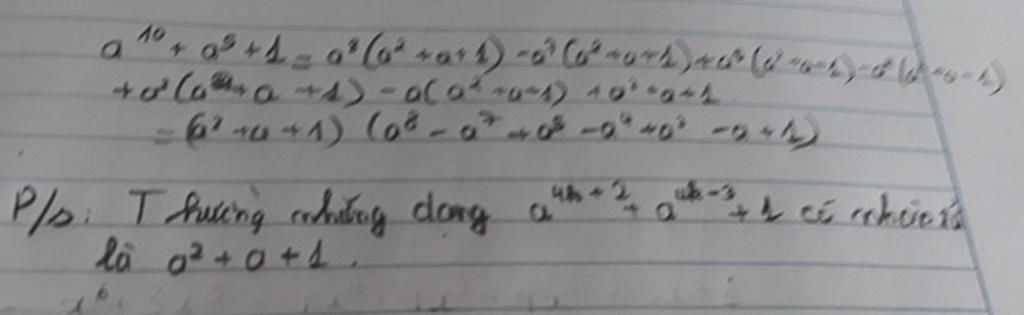 a¹⁰ + a⁵ + 1 = a⁸(a² + a + 1) - a⁷(a² + a + 1) + a⁵(a² + a + 1) - a⁴(a² + a + 1)
+ a³(a² + a + 1) - a(a² + a + 1) + a² + a + 1
= (a² + a + 1)(a⁸ - a⁷ + a⁵ - a⁴ + a³ - a + 1)
P/s: Thường những dạng + 1 có
là a² + a + 1.